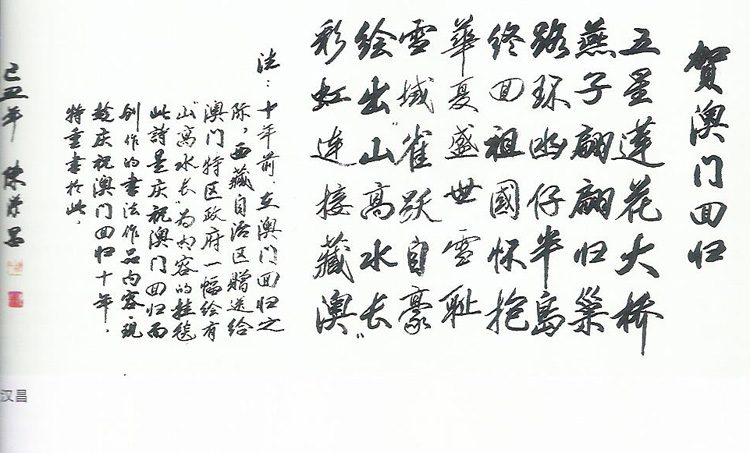 賀澳门回归
五星莲花大桥
燕子翩翩归巢
路环凼仔半島
终回祖國怀抱
華夏盛世雪耻
雪域雀跃自豪
绘出“山高水长”
彩虹连接藏澳
注：十年前，在澳门回归之
际，西藏自治区赠送给
澳门特区政府一幅绘有
“山高水长”为内容的挂毯
此詩是庆祝澳门回归而
创作的書法作品内容，现
趁庆祝澳门回归十年，
特重書於此。
己丑年 陈汉昌
汉昌